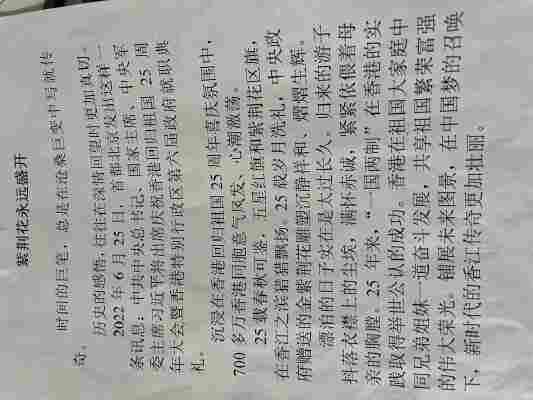 紫荆花永远盛开
时间的巨笔，总是在沧桑巨变中写就传
奇。
历史的感悟，往往在深情回望时更加真切。
2022 年 6 月 25 日，首都北京发出这样一
条讯息：中共中央总书记、国家主席、中央军
委主席习近平将出席庆祝香港回归祖国 25 周
年大会暨香港特别行政区第六届政府就职典
礼。
沉浸在香港回归祖国 25 周年喜庆氛围中，
700 多万香港同胞意气风发、心潮激荡。
25 载春秋可鉴，五星红旗和紫荆花区旗，
在香江之滨猎猎飘扬。25 载岁月洗礼，中央政
府赠送的金紫荆花雕塑沉静祥和、熠熠生辉。
漂泊的日子实在是太过长久。归来的游子
抖落衣襟上的尘埃，满怀赤诚，紧紧依偎着母
亲的胸膛。25 年来，“一国两制”在香港的实
践取得举世公认的成功。香港在祖国大家庭中
同兄弟姐妹一道奋斗发展，共享祖国繁荣富强
的伟大荣光。铺展未来图景，在中国梦的召唤
下，新时代的香江传奇更加壮丽。